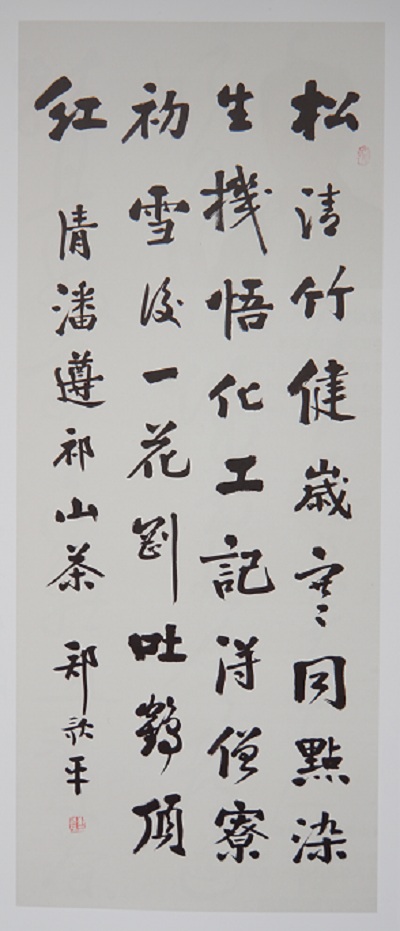 松清竹健歲寒同點染
生機悟化工記得僧寮
初雪後一花剛吐鶴頂
红 清潘遵祁山茶 郑平